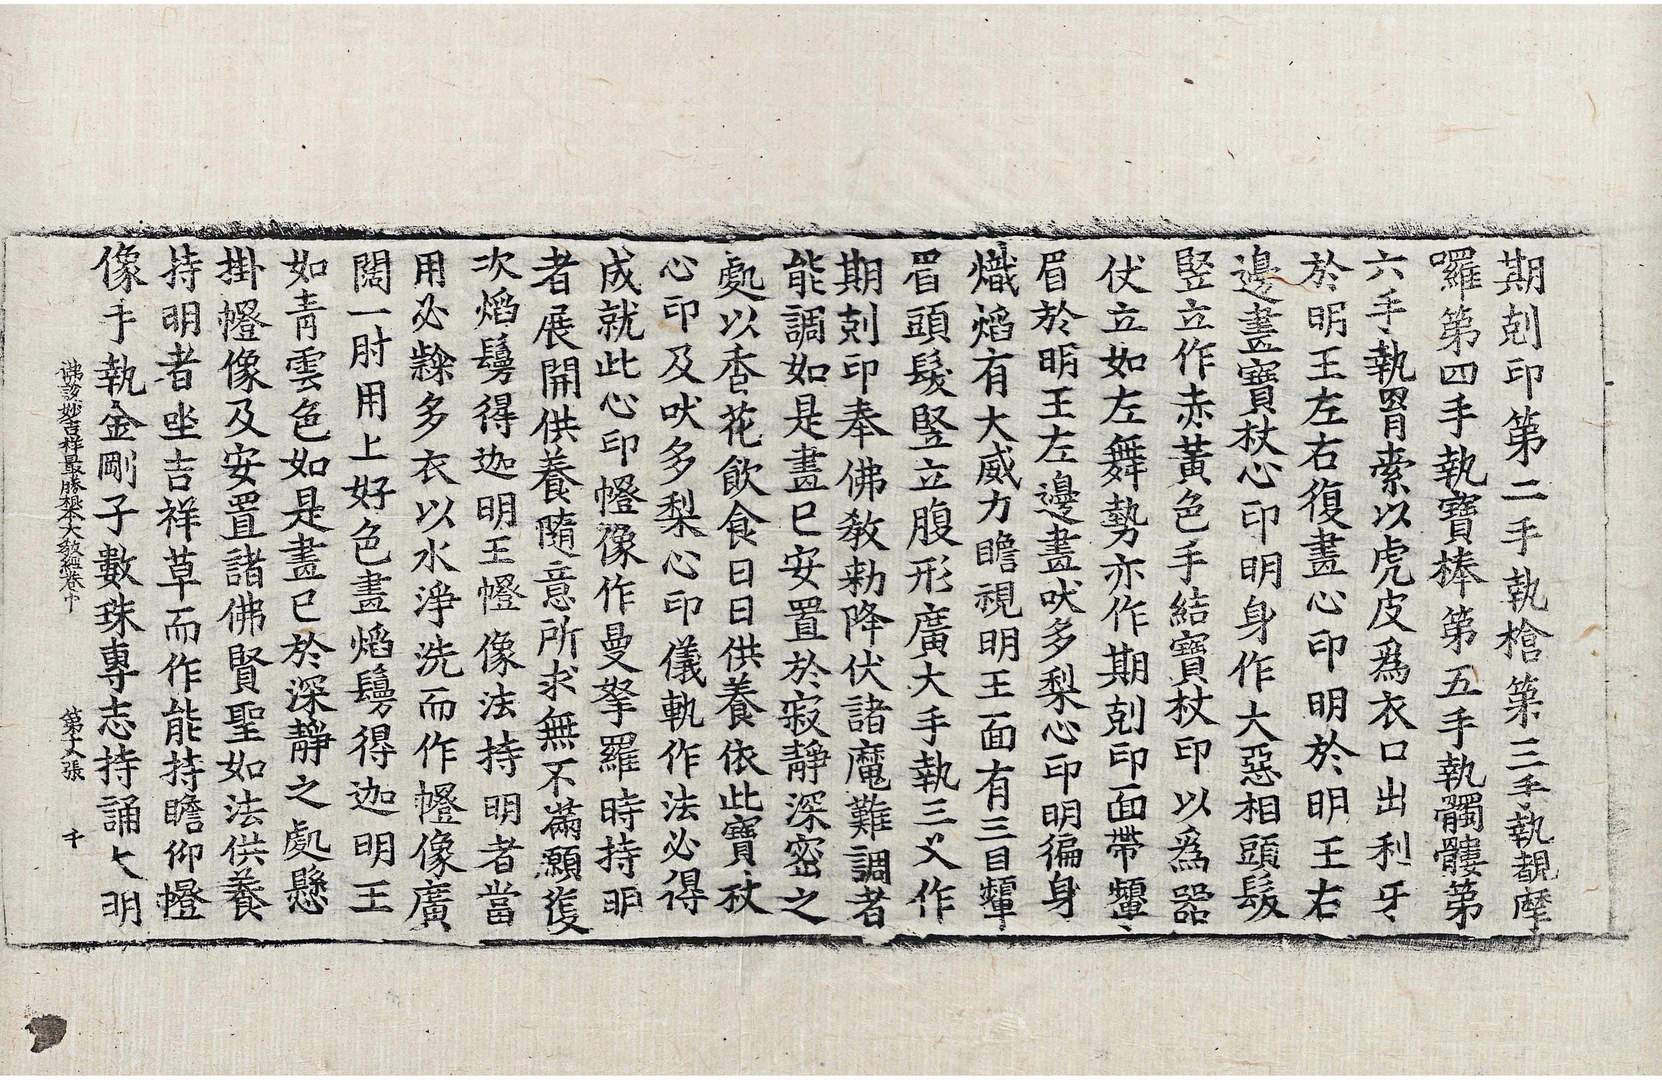 期剋印第二手執槍第三手執覩摩
囉第四手執寶棒第五手執髑髏第
六手執罥索以虎皮爲衣口出利牙
於明王左右復畫心印明於明王右
邊畫寶杖心印明身作大惡相頭髮
竪立作赤黃色手結寶杖印以爲器
仗立如左舞勢亦作期剋印面帶顰
眉於明王左邊畫吠多梨心印明徧身
熾焰有大威力瞻視明王面有三目顰
眉頭髮竪立腹形廣大手執三叉作
期剋印奉佛教勅降伏諸魔難調者
能調如是畫已安置於寂靜深密之
處以香花飲食日日供養依此寶杖
心印及吠多梨心印儀軌作法必得
成就此心印㡧像作曼拏羅時持明
者展開供養隨意所求無不滿願復
次焰鬘得迦明王㡧像法持明者當
用必隸多衣以水淨洗而作㡧像廣
闊一肘用上好色畫焰鬘得迦明王
如青雲色如是畫已於深靜之處懸
掛㡧像及安置諸佛賢聖如法供養
持明者坐吉祥草而作能持瞻仰㡧
像手執金剛子數珠專志持誦大明
佛說妙吉祥最勝根本大教經卷中 第十八張 千